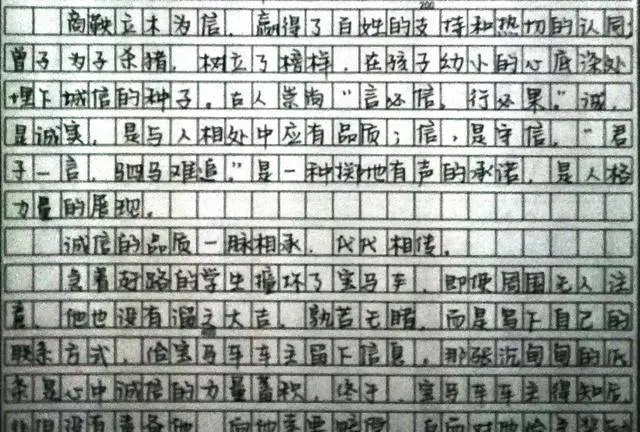 200
商鞅立木为信,赢得了百姓的支持和热切的认同;
曾子为子杀猪,树立了榜样,在孩子幼小的心底深处
埋下诚信的种子。古人崇尚“言必信,行必果。”诚,
是诚实,是与人相处中应有品质;信,是守信,“君
子一言,驷马难追。”是一种掷地有声的承诺,是人格
力量的展现。
诚信的品质一脉相承,代代相传。
急着赶路的学生撞坏了宝马车,即使周围无人注
意,他也没有溜之大吉,熟若无睹,而是留下自己的
联系方式,给宝马车车主留下信息,那张沉甸甸的纸
条是心中诚信的力量蓄积,终于,宝马车车主得知后
没有责备他,向他索要赔偿,反而对他